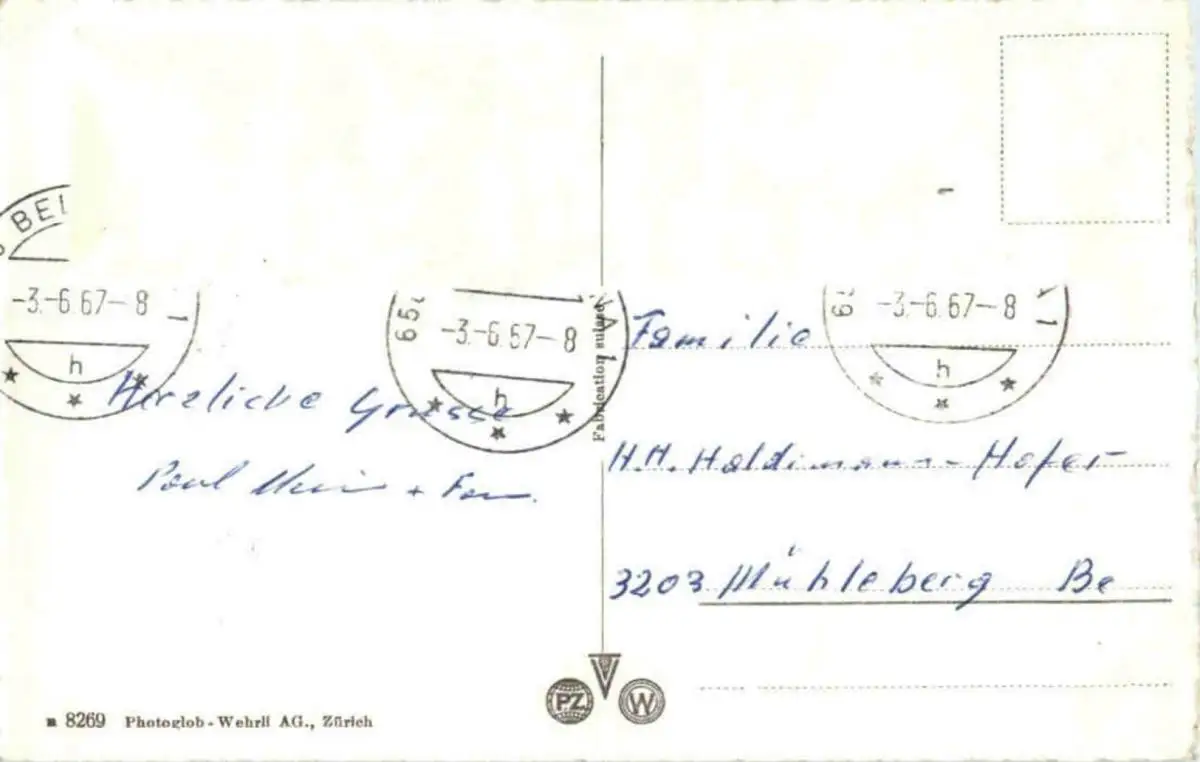 BEL
-3.-6.67-8
1
h
650
-3.-6.67-8
A
1
h
65
-3.-6.67-8
A 1
h
Herzliche Grüsse
Paul + Fam.
Fabrication suisse
Familie
H.H. Haldimann-Hofer
3203 Mühleberg Be
PZ
W
n 8269 Photoglob-Wehrli AG., Zürich